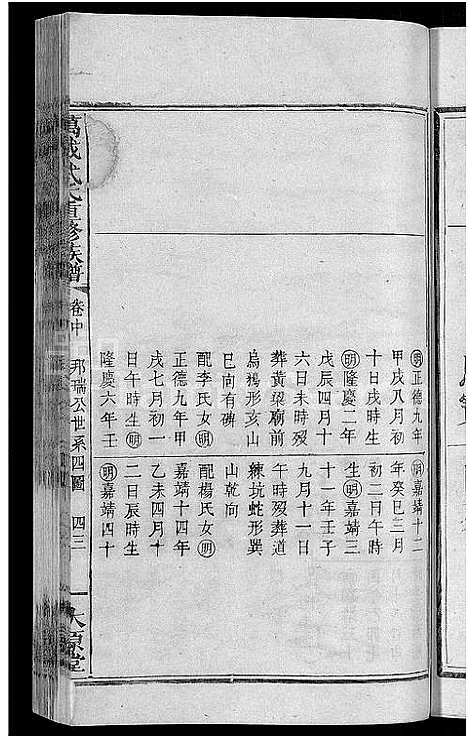 ㊔正德九年
甲戌八月初
十日戌時生
㊔隆慶二年
戊辰四月十
六日未時歿
葬黃梁廟前
烏鴉形亥山
巳向有碑
配李氏女㊔
正德九年甲
戌七月初一
日午時生㊔
隆慶六年壬
㊔嘉靖十二
年癸巳三月
初二日午時
生㊔嘉靖三
十一年壬子
九月十一日
午時歿葬道
練坑蛇形巽
山乾向
配楊氏女㊔
嘉靖十四年
乙未四月十
二日辰時生
㊔嘉靖四十
萬載武氏重修族譜
卷中
邦瑞公世系四圖
四三
太原堂